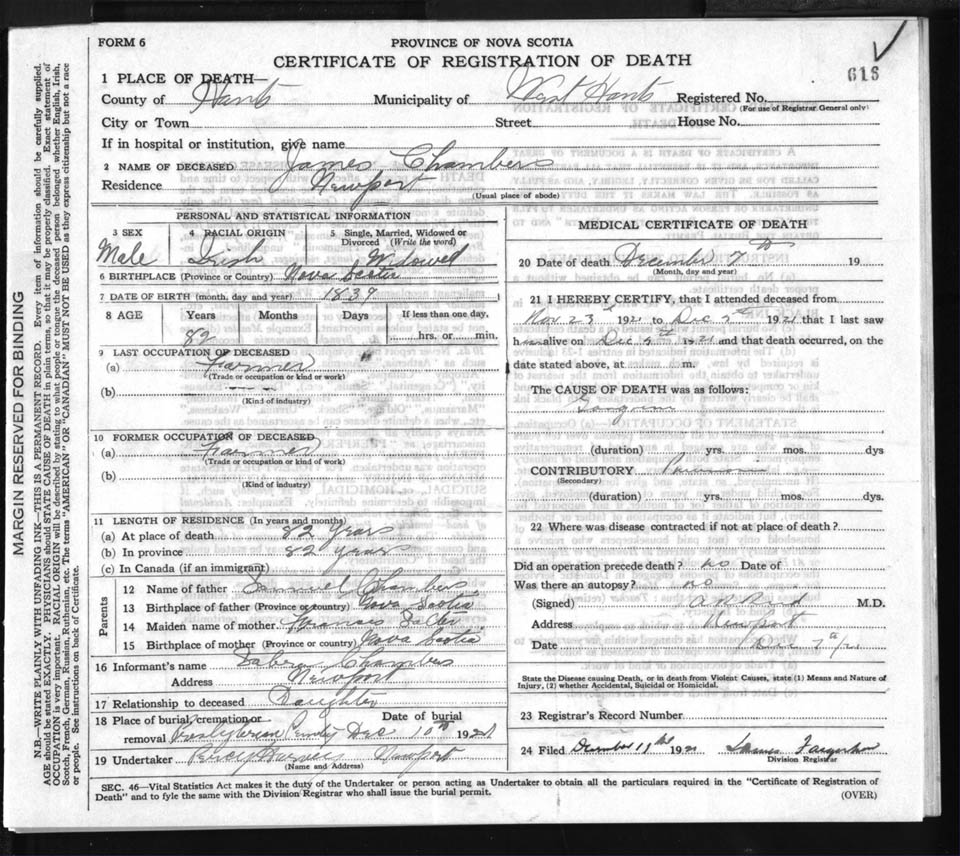 FORM 6
PROVINCE OF NOVA SCOTIA
CERTIFICATE OF REGISTRATION OF DEATH
618
1 PLACE OF DEATH—
County of Hants Municipality of West Hants Registered No.
(For use of Registrar General only)
City or Town Street House No.
If in hospital or institution, give name
2 NAME OF DECEASED James Chambers
Residence Newport
(Usual place of abode)
PERSONAL AND STATISTICAL INFORMATION
3 SEX 4 RACIAL ORIGIN 5 Single, Married, Widowed or Divorced (Write the word)
Male Irish Widowed
6 BIRTHPLACE (Province or Country) Nova Scotia
7 DATE OF BIRTH (month, day and year) 1839
8 AGE Years Months Days If less than one day,
82 hrs. or min.
9 LAST OCCUPATION OF DECEASED
(a) Farmer
(Trade or occupation or kind of work)
(b)
(Kind of industry)
10 FORMER OCCUPATION OF DECEASED
(a) Farmer
(Trade or occupation or kind of work)
(b)
(Kind of industry)
11 LENGTH OF RESIDENCE (In years and months)
(a) At place of death 82 years
(b) In province 82 years
(c) In Canada (if an immigrant)
Parents
12 Name of father Samuel Chambers
13 Birthplace of father (Province or country) Nova Scotia
14 Maiden name of mother Frances
15 Birthplace of mother (Province or country) Nova Scotia
16 Informant's name Chambers
Address Newport
17 Relationship to deceased Daughter
18 Place of burial, cremation or removal Presbyterian Cemetery Date of burial Dec 10th 1921
19 Undertaker Percy Harvey Newport
(Name and Address)
MEDICAL CERTIFICATE OF DEATH
20 Date of death December 7th 19
(Month, day and year)
21 I HEREBY CERTIFY, that I attended deceased from
Nov 23 1921 to Dec 1921 that I last saw
h alive on Dec 1921 and that death occurred, on the
date stated above, at m.
The CAUSE OF DEATH was as follows:
(duration) yrs. mos. dys
CONTRIBUTORY
(Secondary)
(duration) yrs. mos. dys.
22 Where was disease contracted if not at place of death?
Did an operation precede death? no Date of
Was there an autopsy? no
(Signed) M.D.
Address Newport
Date Dec 7th/21
State the Disease causing Death, or in death from Violent Causes, state (1) Means and Nature of
Injury, (2) whether Accidental, Suicidal or Homicidal.
23 Registrar's Record Number
24 Filed December 1921
Division Registrar
SEC. 46—Vital Statistics Act makes it the duty of the Undertaker or person acting as Undertaker to obtain all the particulars required in the "Certificate of Registration of
Death" and to fyle the same with the Division Registrar who shall issue the burial permit.
(OVER)
MARGIN RESERVED FOR BINDING
N.B.—WRITE PLAINLY WITH UNFADING INK—THIS IS A PERMANENT RECORD. Every item of information should be carefully supplied.
AGE should be stated EXACTLY. PHYSICIANS should STATE CAUSE OF DEATH in plain terms, so that it may be properly classified. Exact statement of
OCCUPATION is very important. RACIAL ORIGIN will be described by stating to what people or tongue the deceased person belonged whether English, Irish,
Scotch, French, German, Russian, Ruthenian, etc. The terms "AMERICAN" OR "CANADIAN" MUST NOT BE USED as they express citizenship but not a race
or people. See instructions on back of Certificate.